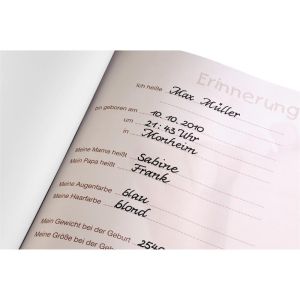 Erinnerung
Ich heiße Max Müller
bin geboren am 10. 10. 2010
um 21: 43 Uhr
in Monheim
Meine Mama heißt Sabine
Mein Papa heißt Frank
Meine Augenfarbe blau
Meine Haarfarbe blond
Mein Gewicht bei der Geburt 2540
Meine Größe bei der Gebur